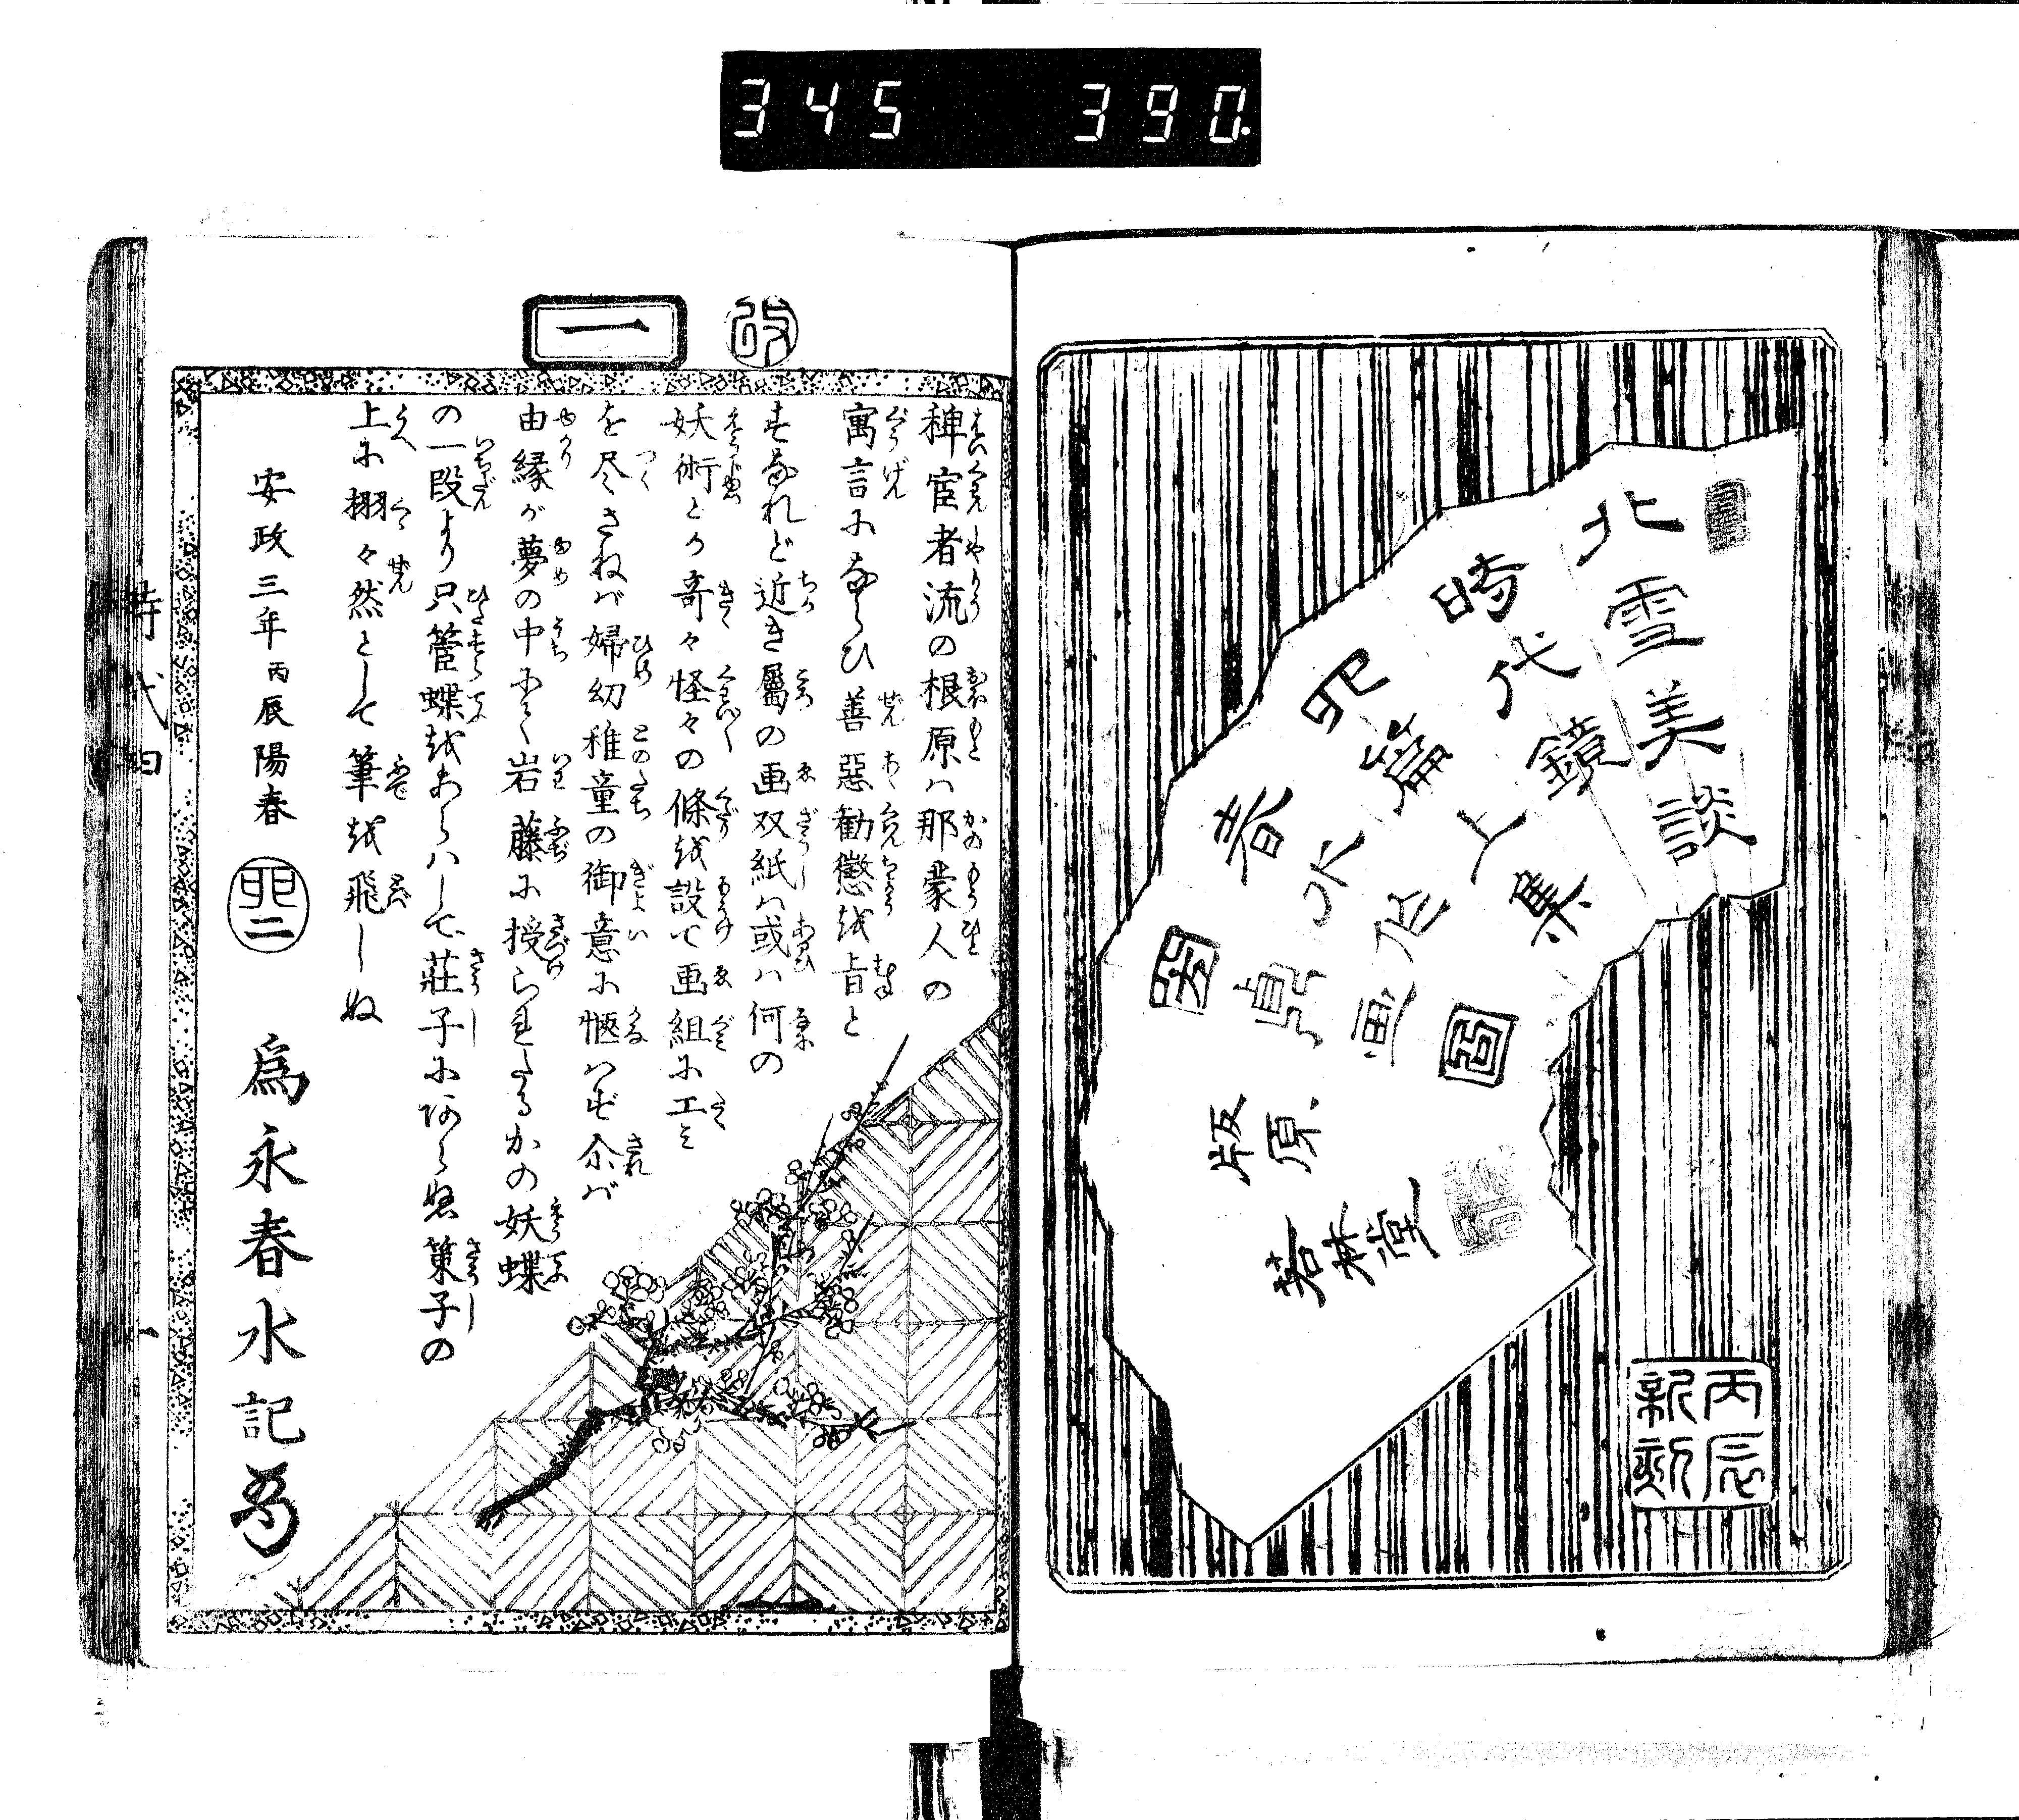 345 390.
北雪美談
時代鏡
四篇上集
春水作
貞魚画
版原
若林堂
丙辰
新刻
改
一
稗官者流の根原ハ那蒙人の
寓言にならひ善惡勧懲を旨と
すなれど近き屬の画双紙ハ或ハ何の
妖術とか奇々怪々の條を設て画組に工ミ
を尽さねバ婦幼稚童の御意に愜ハず尒バ
由縁が夢の中にて岩藤に授られたるかの妖蝶
の一段より只管蝶をあらハして莊子にあらぬ策子の
上に栩々然として筆を飛しぬ
安政三年丙辰陽春
爲永春水記
時代四
一